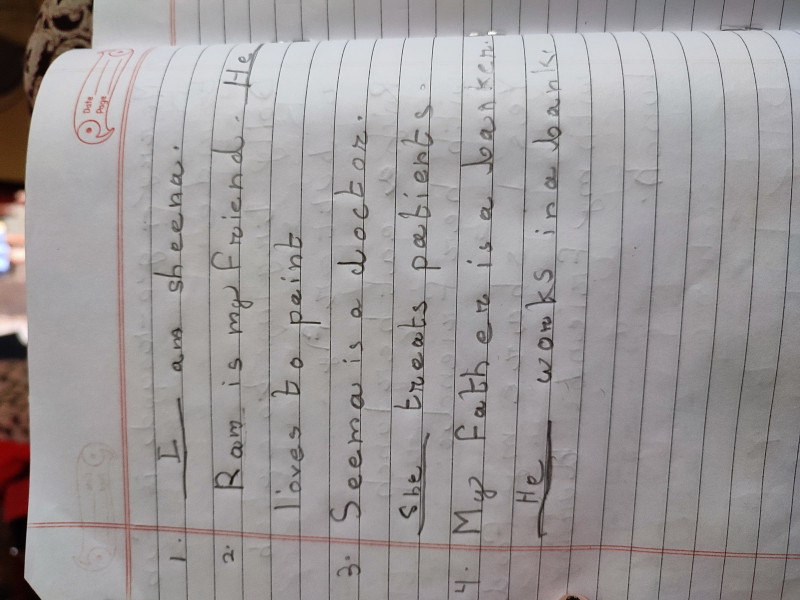 Date
Page
1. I am sheena.
2. Ram is my Friend. He
loves to paint
3. Seema is a doctor.
She treats patients.
4. My Father is a banker.
He works in a bank.